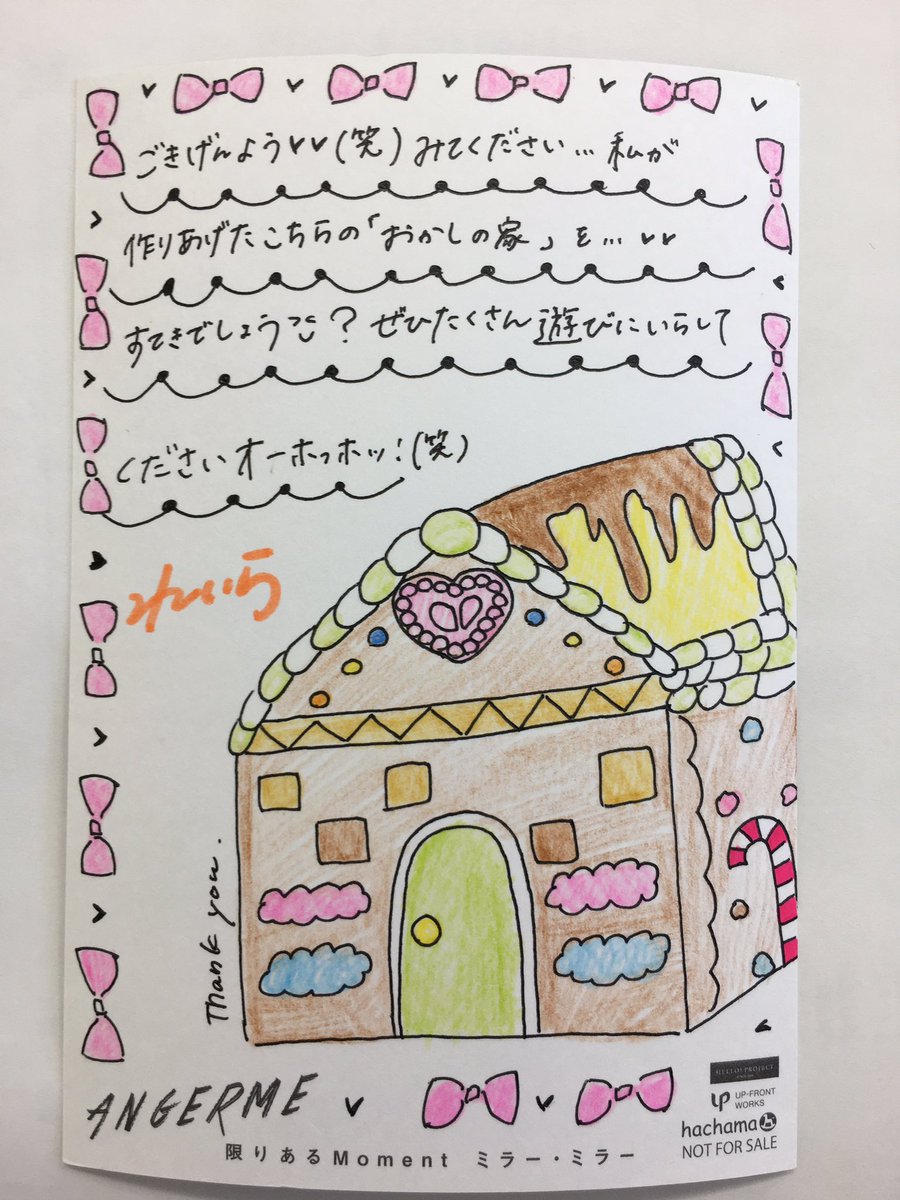 ごきげんよう♥♥(笑)みてください…私が
作りあげたこちらの「おかしの家」を…♥♥
すてきでしょう？ぜひたくさん遊びにいらして
くださいオーホッホッ!(笑)
Thank you.
ANGERME
HELLO! PROJECT
UP-FRONT
WORKS
hachama
NOT FOR SALE
限りあるMoment ミラー・ミラー